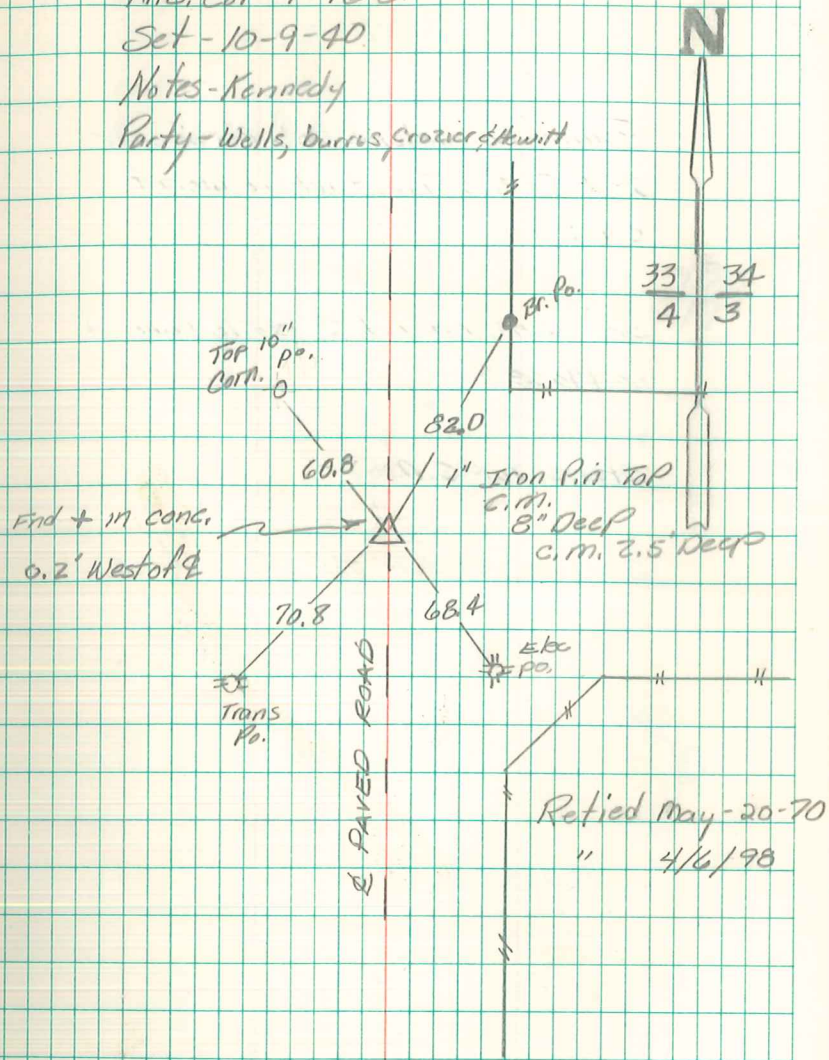 Set - 10-9-40
Notes - Kennedy
Party - Wells, burrus, crozier & Hewitt
N
33 34
4 3
Br. Po.
Top 10" po.
Corn.
82.0
60.8
1" Iron Pin Top
C.M.
8" Deep
C.M. 2.5' Deep
Fnd + in conc.
0.2' West of ℄
70.8
68.4
Elec
po.
Trans
Po.
℄ PAVED ROAD
Retied May-20-70
" 4/6/98